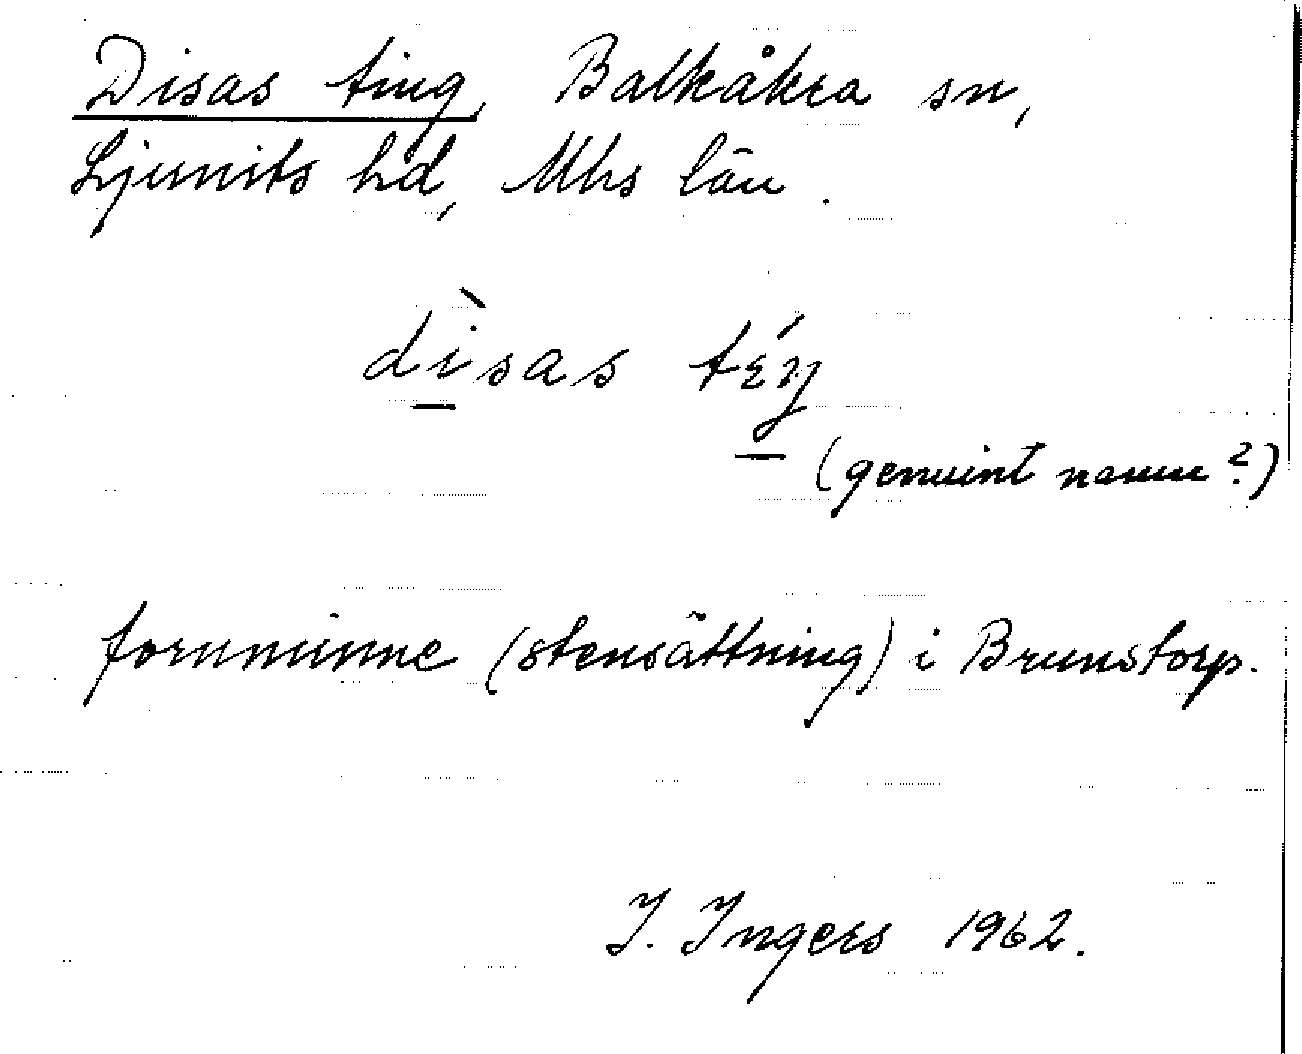 Disas ting, Balkåkra sn,
Ljunits hd, Mhs län.
dìsas téŋ
(genuint namn?)
fornminne (stensättning) i Brunstorp.
I. Ingers 1962.